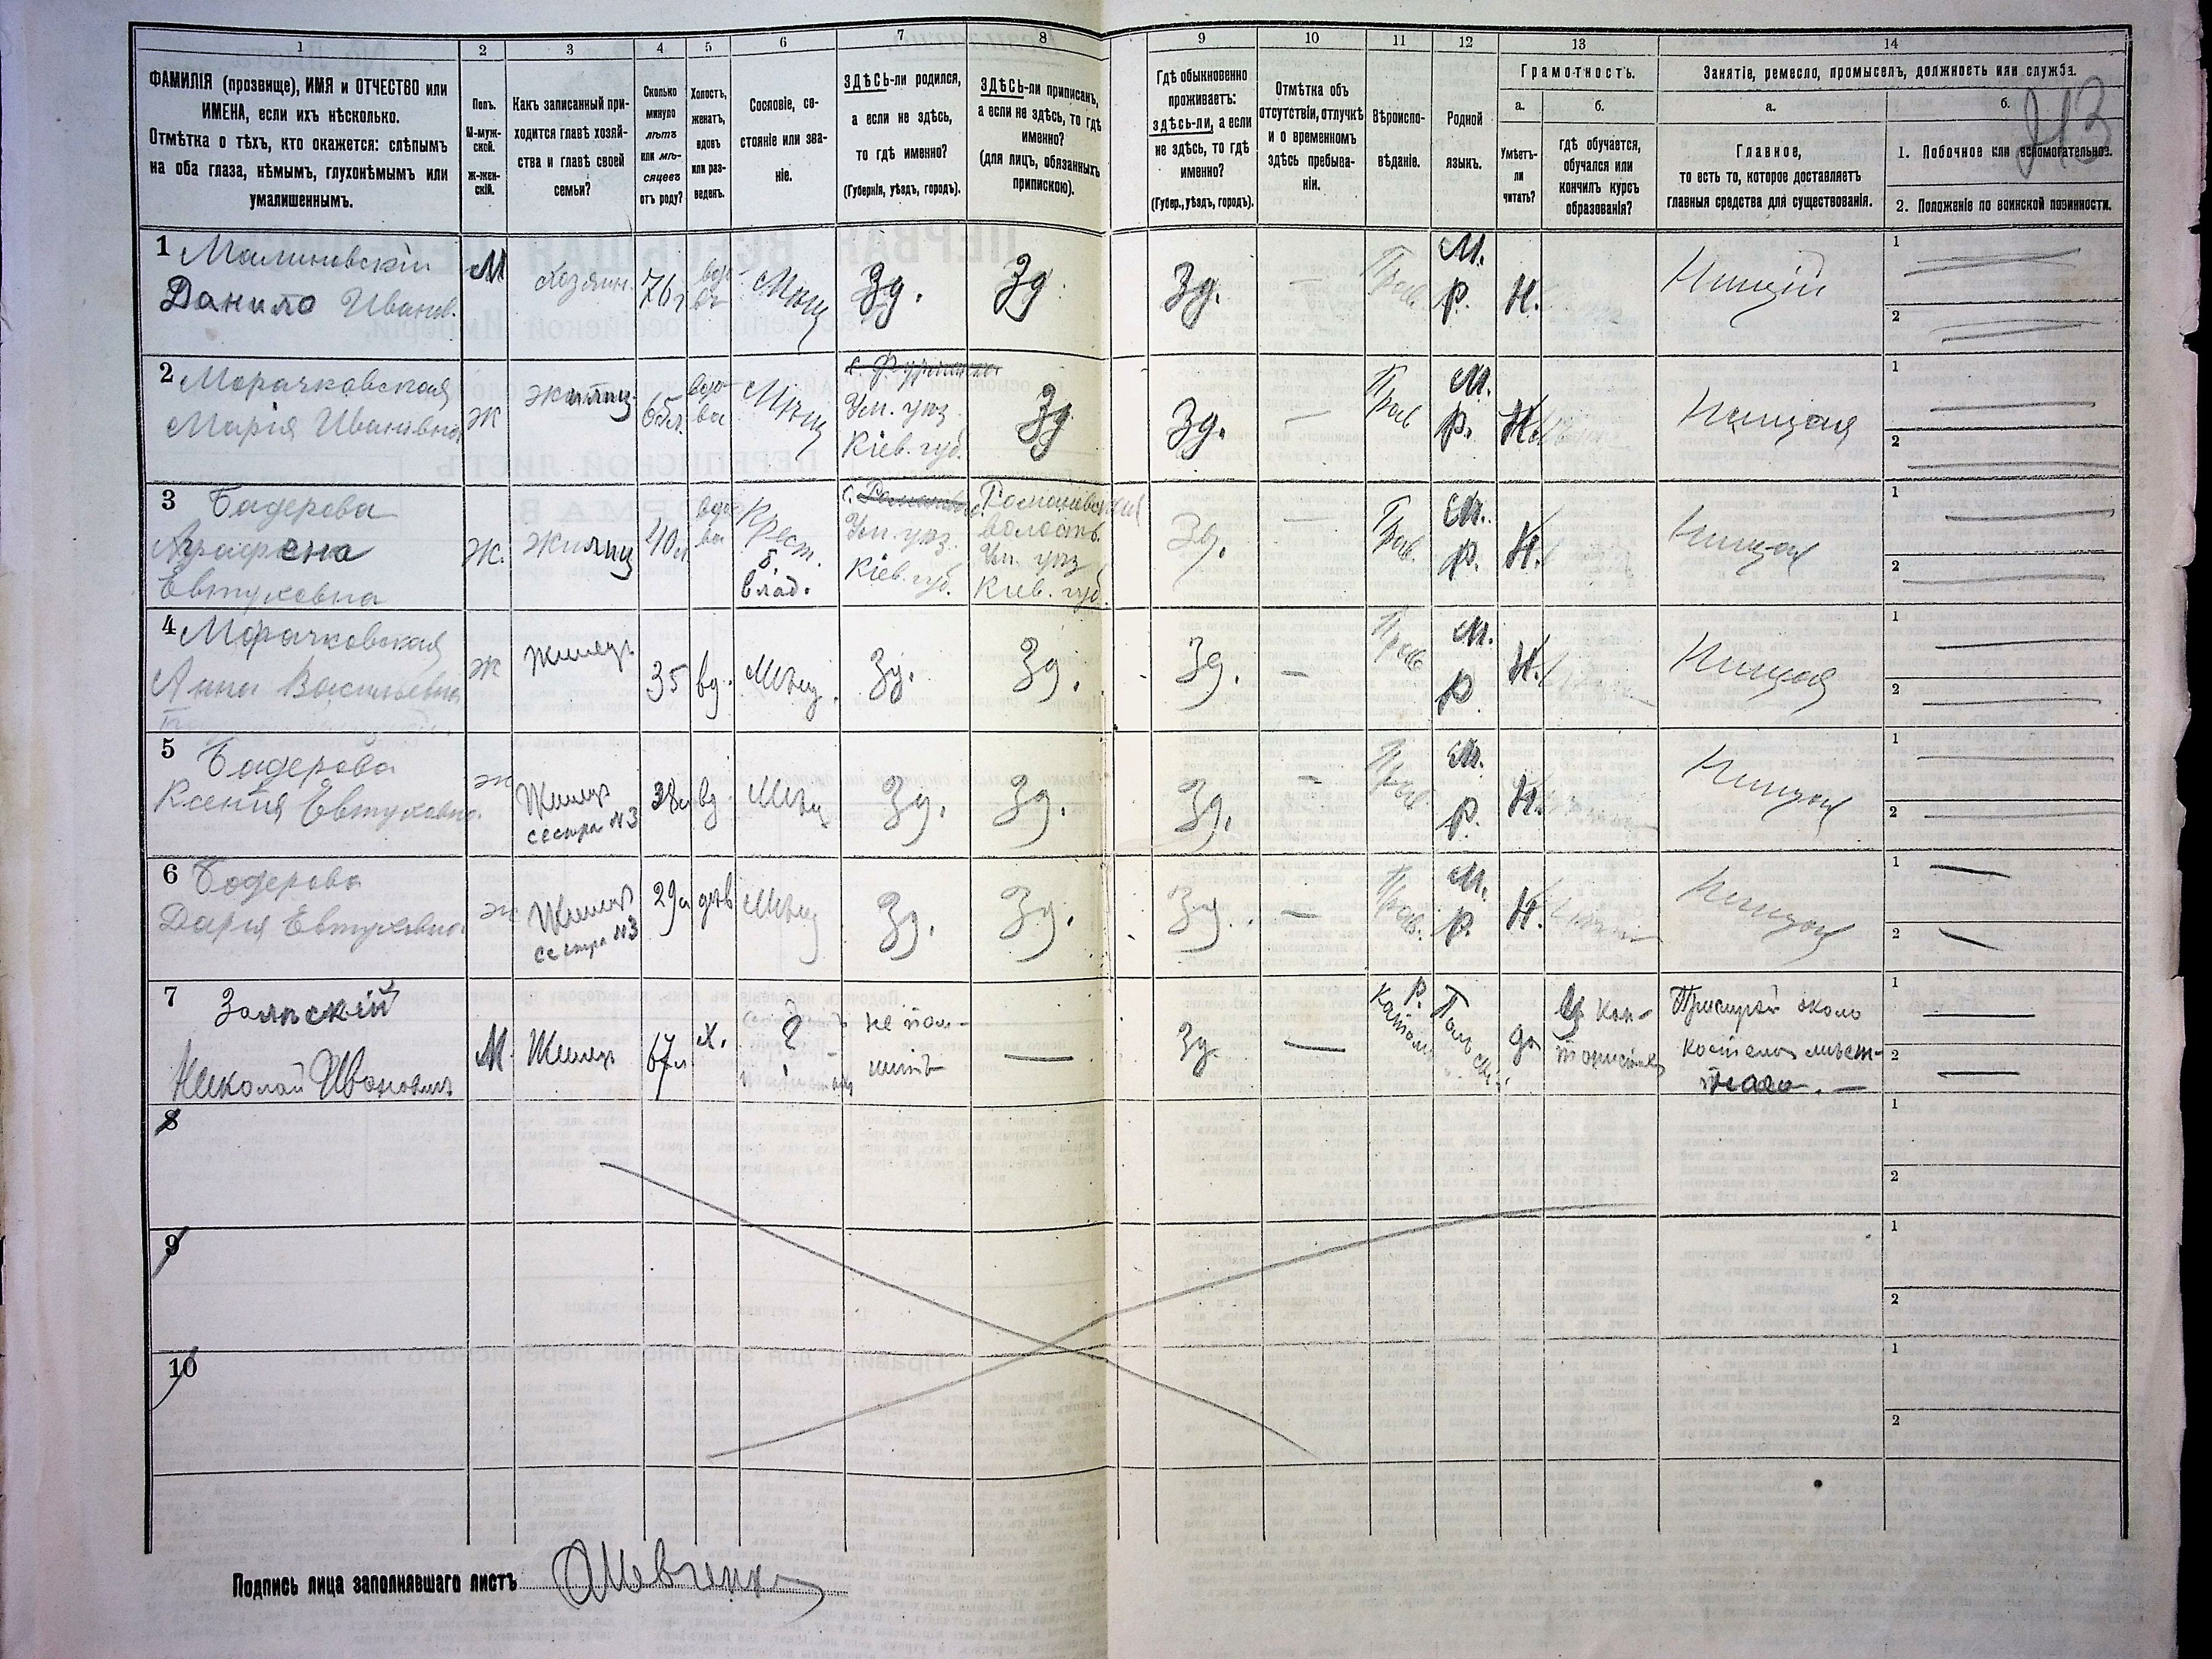 1
2
3
4
5
6
7
8
9
10
11
12
13
14
ФАМИЛІЯ (прозвище), ИМЯ и ОТЧЕСТВО или
ИМЕНА, если ихъ нѣсколько.
Отмѣтка о тѣхъ, кто окажется: слѣпымъ
на оба глаза, нѣмымъ, глухонѣмымъ или
умалишеннымъ.
Полъ.
М-муж-
ской.
ж-жен-
скій.
Какъ записанный при-
ходится главѣ хозяй-
ства и главѣ своей
семьи?
Сколько
минуло
лѣтъ
или мѣ-
сяцевъ
отъ роду?
Холостъ,
женатъ,
вдовъ
или раз-
веденъ.
Сословіе, со-
стояніе или зва-
ніе.
ЗДѢСЬ-ли родился,
а если не здѣсь,
то гдѣ именно?
(Губернія, уѣздъ, городъ).
ЗДѢСЬ-ли приписанъ,
а если не здѣсь, то гдѣ
именно?
(для лицъ, обязанныхъ
припискою).
Гдѣ обыкновенно
проживаетъ:
здѣсь-ли, а если
не здѣсь, то гдѣ
именно?
(Губер., уѣздъ, городъ).
Отмѣтка объ
отсутствіи, отлучкѣ
и о временномъ
здѣсь пребыва-
ніи.
Вѣроиспо-
вѣданіе.
Родной
языкъ.
Грамотность.
а.
б.
Умѣетъ-
ли
читать?
гдѣ обучается,
обучался или
кончилъ курсъ
образованія?
Занятіе, ремесло, промыселъ, должность или служба.
а.
б.
Главное,
то есть то, которое доставляетъ
главныя средства для существованія.
1. Побочное или вспомогательное.
2. Положеніе по воинской повинности.
1 Малиновскій
Данило Иванов.
М
Хозяин.
76 г
вдо-
въ
Мѣщ
Зд.
Зд.
Зд.
—
Прав.
М.
р.
Н.
Нищій
1
2
2 Морачковская
Марія Ивановна
Ж
жилиц
65 л.
вдо-
ва
Мѣщ
Ум. уѣз
Кіев. губ.
Зд
Зд.
—
Прав
М.
р.
Н.
Нищая
1
2
3 Бадерова
Аграфена
Евтуховна
Ж.
жилиц
40 л
вдо
ва
Крест.
б.
влад.
Ум. уѣз.
Кіев. губ.
волость
Ум. уѣз
Кіев. губ.
Зд.
—
Прав.
М.
р.
Н.
Нищая
1
2
4 Морачковская
Анна Васильевна
Ж
Жилец
35
вд.
Мѣщ.
Зд.
Зд.
Зд.
—
Прав
М.
р
Н.
Нищая
1
2
5 Бадерова
Ксенія Евтуховна.
ж
Жилец
сестра №3
38 л
вд
Мѣщ
Зд.
Зд.
Зд.
—
Прав
М.
р.
Н.
Нищая
1
2
6 Бадерова
Дарія Евтуховна
ж
Жилец
сестра №3
29 л
дѣв
Мѣщ
Зд.
Зд.
Зд.
—
Прав.
М.
р.
Н.
Нищая
1
2
7 Залѣскій
Николай Иванович
М.
Жилец
67 л.
Х.
?
не пом-
нитъ
—
Зд.
—
Р.
Катол
Польск.
да
Прислуга около
костела мѣст-
наго. —
1
2
8
1
2
9
1
2
10
1
2
Подпись лица заполнявшаго листъ